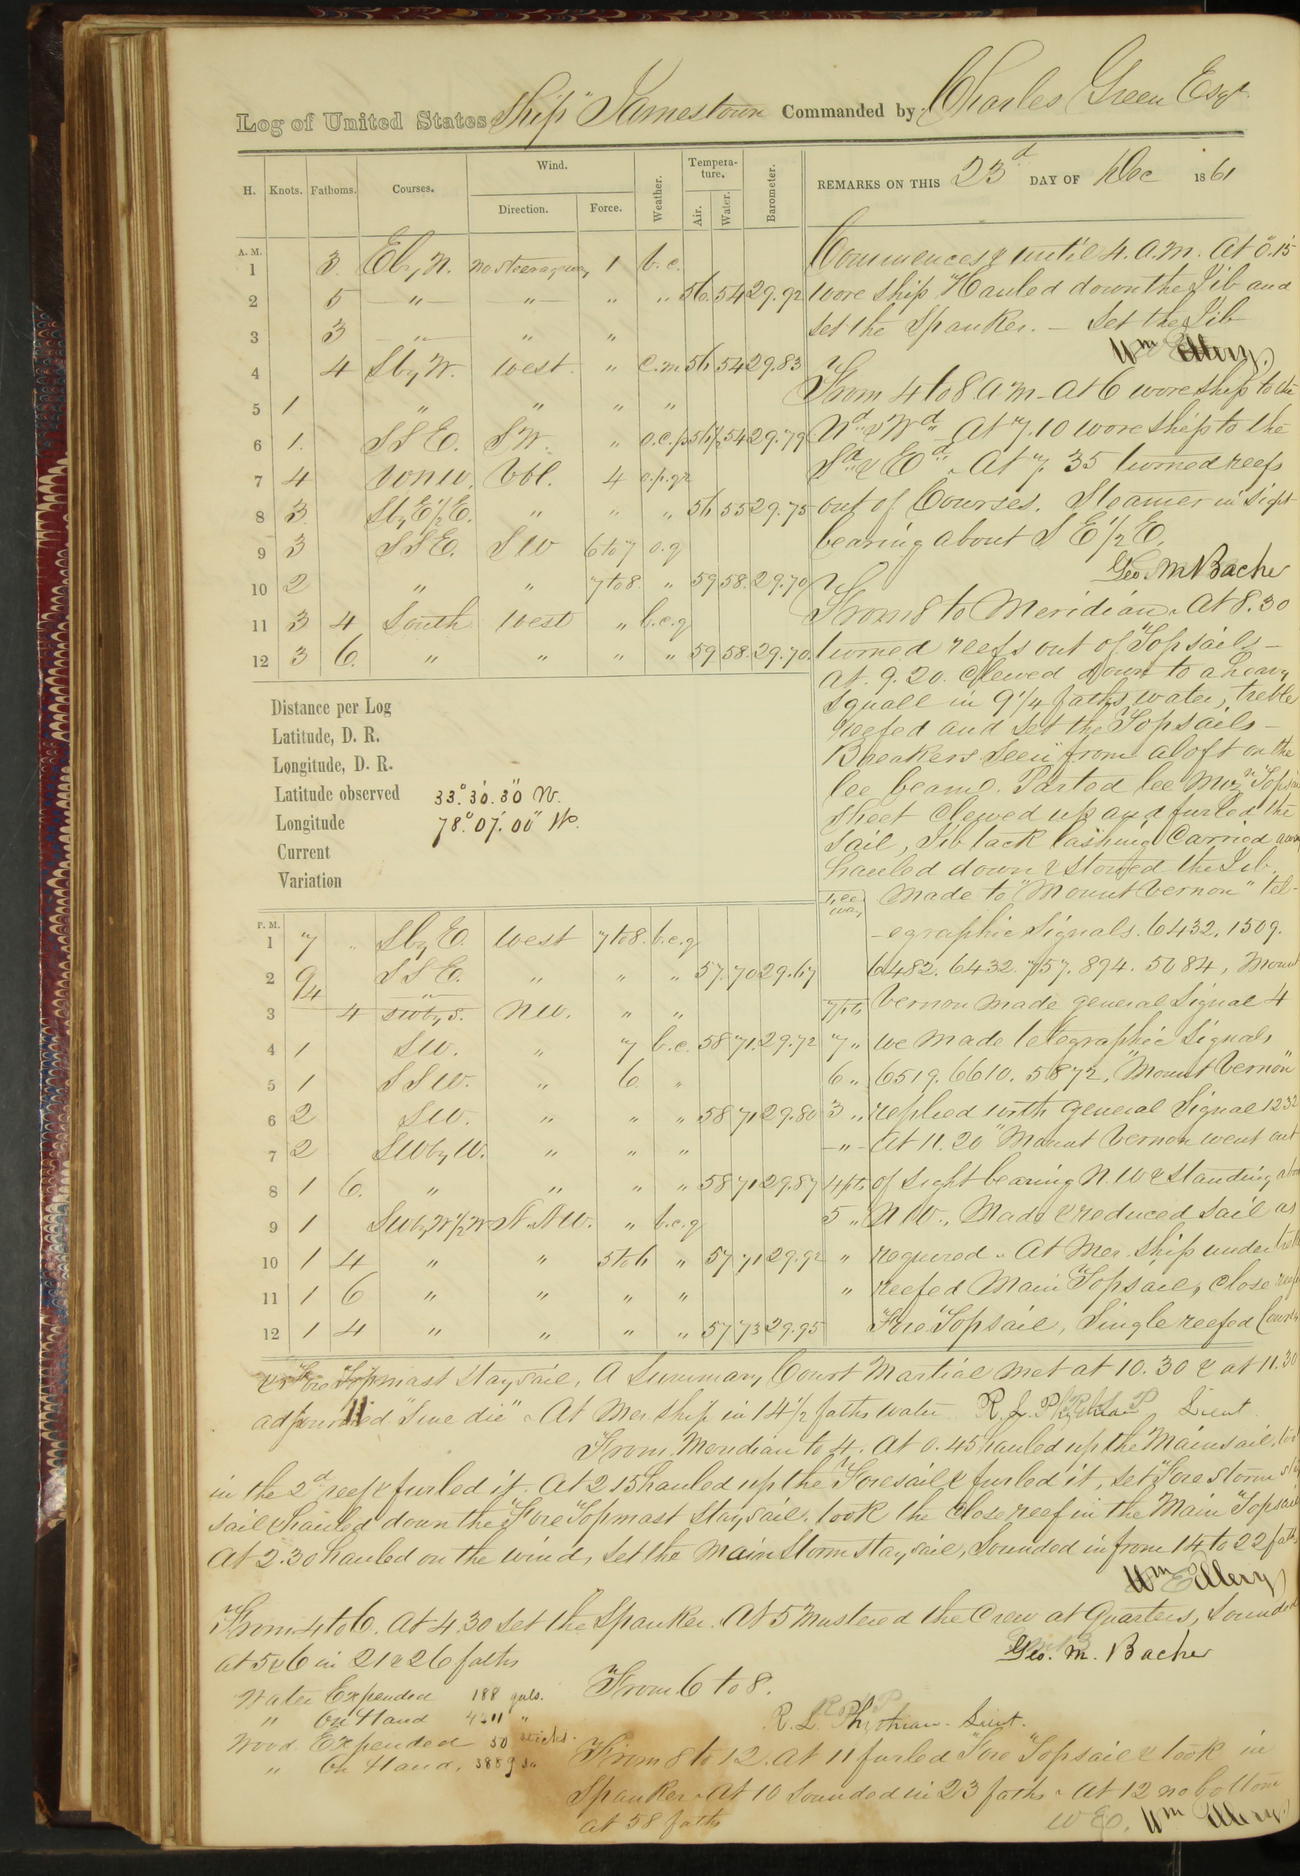 Log of United States Ship "Jamestown Commanded by Charles Green Esqr.
H. Knots. Fathoms. Courses. Wind. Direction. Force. Weather. Temperature. Air. Water. Barometer.
REMARKS ON THIS 23d DAY OF Dec 1861
A. M.
1 3 E by N. no steerageway 1 b.c.
2 5 " " " " 56 54 29.92
3 3 " " "
4 4 S by W. West " c.m 56 54 29.83
5 1 " " " "
6 1. S S E. S W. " o.c.p. 56 1/2 54 29.79
7 4 W N W. Vbl. 4 o.p.qr
8 3 S by E 1/2 E. " " " 56 55 29.75
9 3 S S E. S W 6 to 7 o.q
10 2 " " 7 to 8 " 59 58. 29.70
11 3 4 South West " b.c.q
12 3 6. " " " " 59 58. 29.70.
Commences & until 4. a.m. At 0.15
wore ship Hauled down the Jib and
set the Spanker. — Set the Jib
Wm Ellery.
From 4 to 8 A m — At 6 wore ship to the
Nd & Wd At 7.10 wore ship to the
Sd & Ed. At 7. 35 turned reefs
out of Courses. Steamer in sight
bearing about S E 1/2 E.
Geo. M Bache
From 8 to Meridian. At 8.30
turned reefs out of Topsails —
At. 9. 20. Clewed down to a heavy
squall in 9 1/4 faths water, treble
reefed and set the Topsails —
Breakers seen from aloft on the
lee beam. Parted lee Mizn Topsail
sheet clewed up and furled the
sail, Jib tack lashing Carried away
hauled down & stowed the Jib.
Made to "Mount Vernon" tel-
-egraphic Signals. 6432. 1509.
6482. 6432. 757. 894. 5084, Mount
Vernon made general Signal 4
we made telegraphic Signals
6519. 6610. 5872. "Mount Vernon"
replied with general Signal 1232
At 11. 20 "Mount Vernon went out
of sight bearing N. W & standing about
N W., Made & reduced sail as
required. At Mer. ship under treble
reefed Main Topsail, close reefed
Fore Topsail, Single reefed Courses
Distance per Log
Latitude, D. R.
Longitude, D. R.
Latitude observed 33°. 30'. 30" N.
Longitude 78°. 07'. 00" W.
Current
Variation
Lee way
P. M.
1 7 " S by E. West 7 to 8. b.c.q
2 9 S S E. " " " 57. 70 29.67
3 9/4 4 SW by S. N W. " " 7 pts
4 1 S W. " 7 b.c. 58 71. 29.72 7 "
5 1 S S W. " 6 " 6 "
6 2 S W. " " " 58 71 29.80 3 "
7 2 S W by W. " " " "
8 1 6. " " " " 58 71 29.87 4 pts
9 1 S W by W 1/2 W N. N W. " b.c.q 5 "
10 1 4 " " 5 to 6 " 57 71 29.92 "
11 1 6 " " " " "
12 1 4 " " " " 57 73 29.95
& Fore Topmast Staysail, A Summary Court Martial met at 10. 30 & at 11.30
adjourned "Sine die" At Mer ship in 14 1/2 faths water R. L. Phythian Lieut
From Meridian to 4. At 0. 45 hauled up the Mainsail,
in the 2d reef & furled it. At 2 15 hauled up the Foresail & furled it, set Fore storm stay
sail & hauled down the Fore Topmast Staysail. took the close reef in the Main Topsail
At 2.30 hauled on the wind, set the Main Storm staysail, Sounded in from 14 to 22 faths
Wm Ellery
From 4 to 6. At 4.30 set the Spanker. At 5 Mustered the Crew at Quarters, Sounded
at 5 & 6 in 21 & 26 faths
Geo. M. Bache
Water Expended 188 gals.
" On Hand 4211 "
Wood Expended 50 sticks.
" On Hand, 3889 do
From 6 to 8.
R. L. Phythian. Lieut.
From 8 to 12. At 11 furled Fore Topsail & took in
Spanker. At 10 Sounded in 23 faths. At 12 no bottom
at 58 faths
W E. Wm Ellery